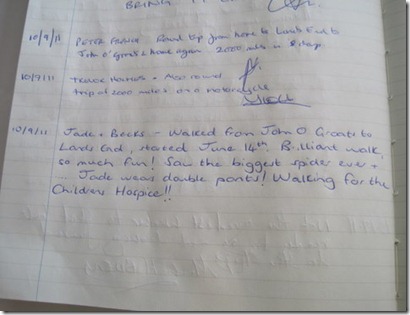 BRING
10/9/11 PETER Round trip from home to Lands End to
John O'Groats & home again 2000 miles in 8 days.
10/9/11 TREVOR - Also round
trip of 2000 miles on a motorcycle
10/9/11 Jade + Becks - Walked from John O Groats to
Lands End, started June 14th. Brilliant walk,
so much fun! Saw the biggest spider ever +
.... Jade wears double pants! Walking for the
Childrens Hospice!!